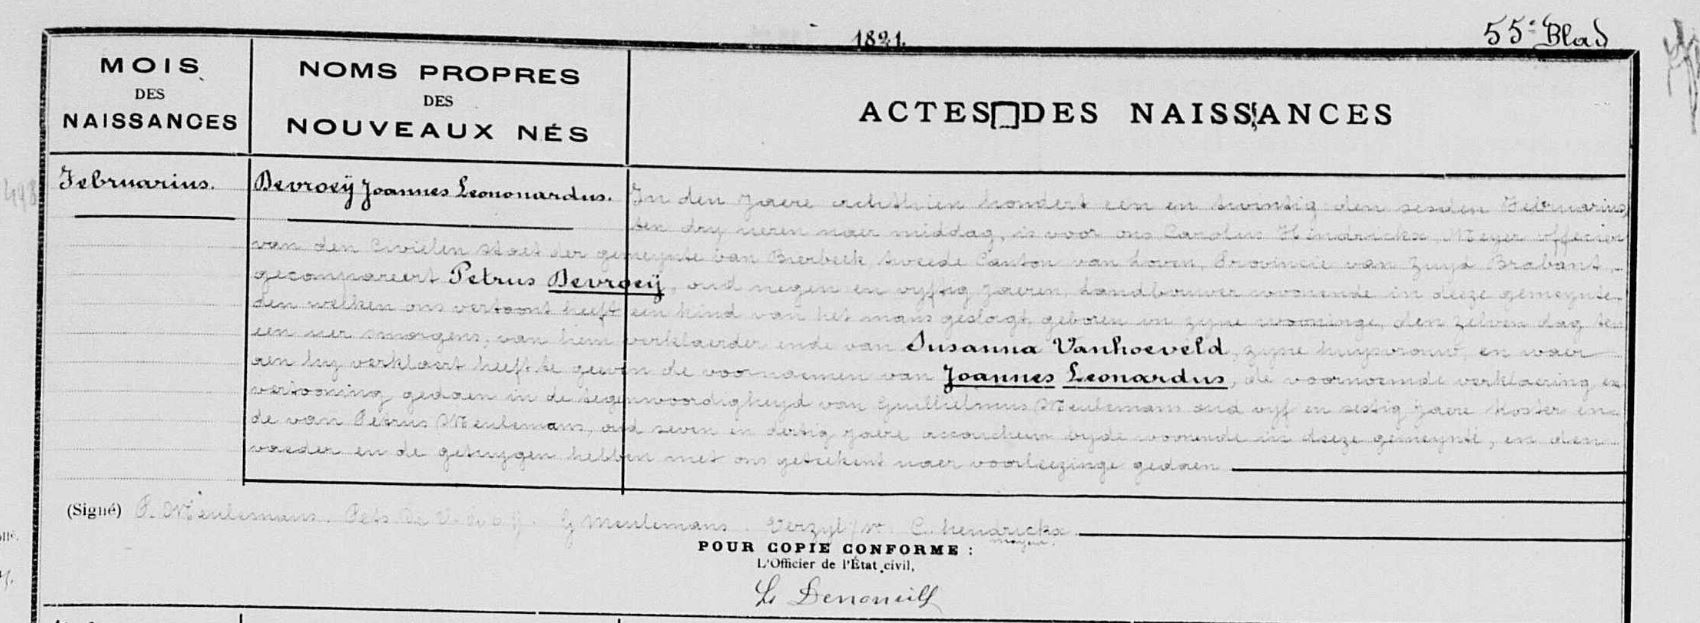 1821.
55e Blad
MOIS
DES
NAISSANCES
NOMS PROPRES
DES
NOUVEAUX NÉS
ACTES DES NAISSANCES
Februarius.
Devroeÿ Joannes Leononardus.
In den jaere achthien hondert een en twintig den sesden Februarius
ten dry ueren naer middag, is voor ons Carolus Hindrickx, Meyer officier
van den civielen staet der gemeynte van Bierbeek, tweede Canton van Loven, Provincie van Zuyd Brabant,
gecompareert Petrus Devroeÿ, oud negen en vyftig jaeren, Landbouwer woonende in deeze gemeynte
den welken ons vertoont heeft een kind van het mans geslagt, geboren in zyne wooninge, den zelven dag ten
een uer smorgens, van hem verklaerder ende van Susanna Vanhoeveld, zyne huysvrouw, en waer
aen hy verklaert heeft te geven de voornaemen van Joannes Leonardus, de voornoemde verklaering en
vertooning gedaen in de tegenwoordigheyd van Guillielmus Meulemans oud vyf en sestig jaere koster en
de van Petrus Meulemans, oud seven en dertig jaere accoucheur byde woonende in deeze gemeynte, en den
vaeder en de getuygen hebben met ons geteekent naer voorleezinge gedaen
(Signé) P. Meulemans. G Meulemans. C. hendrickx
POUR COPIE CONFORME :
L'Officier de l'État civil,